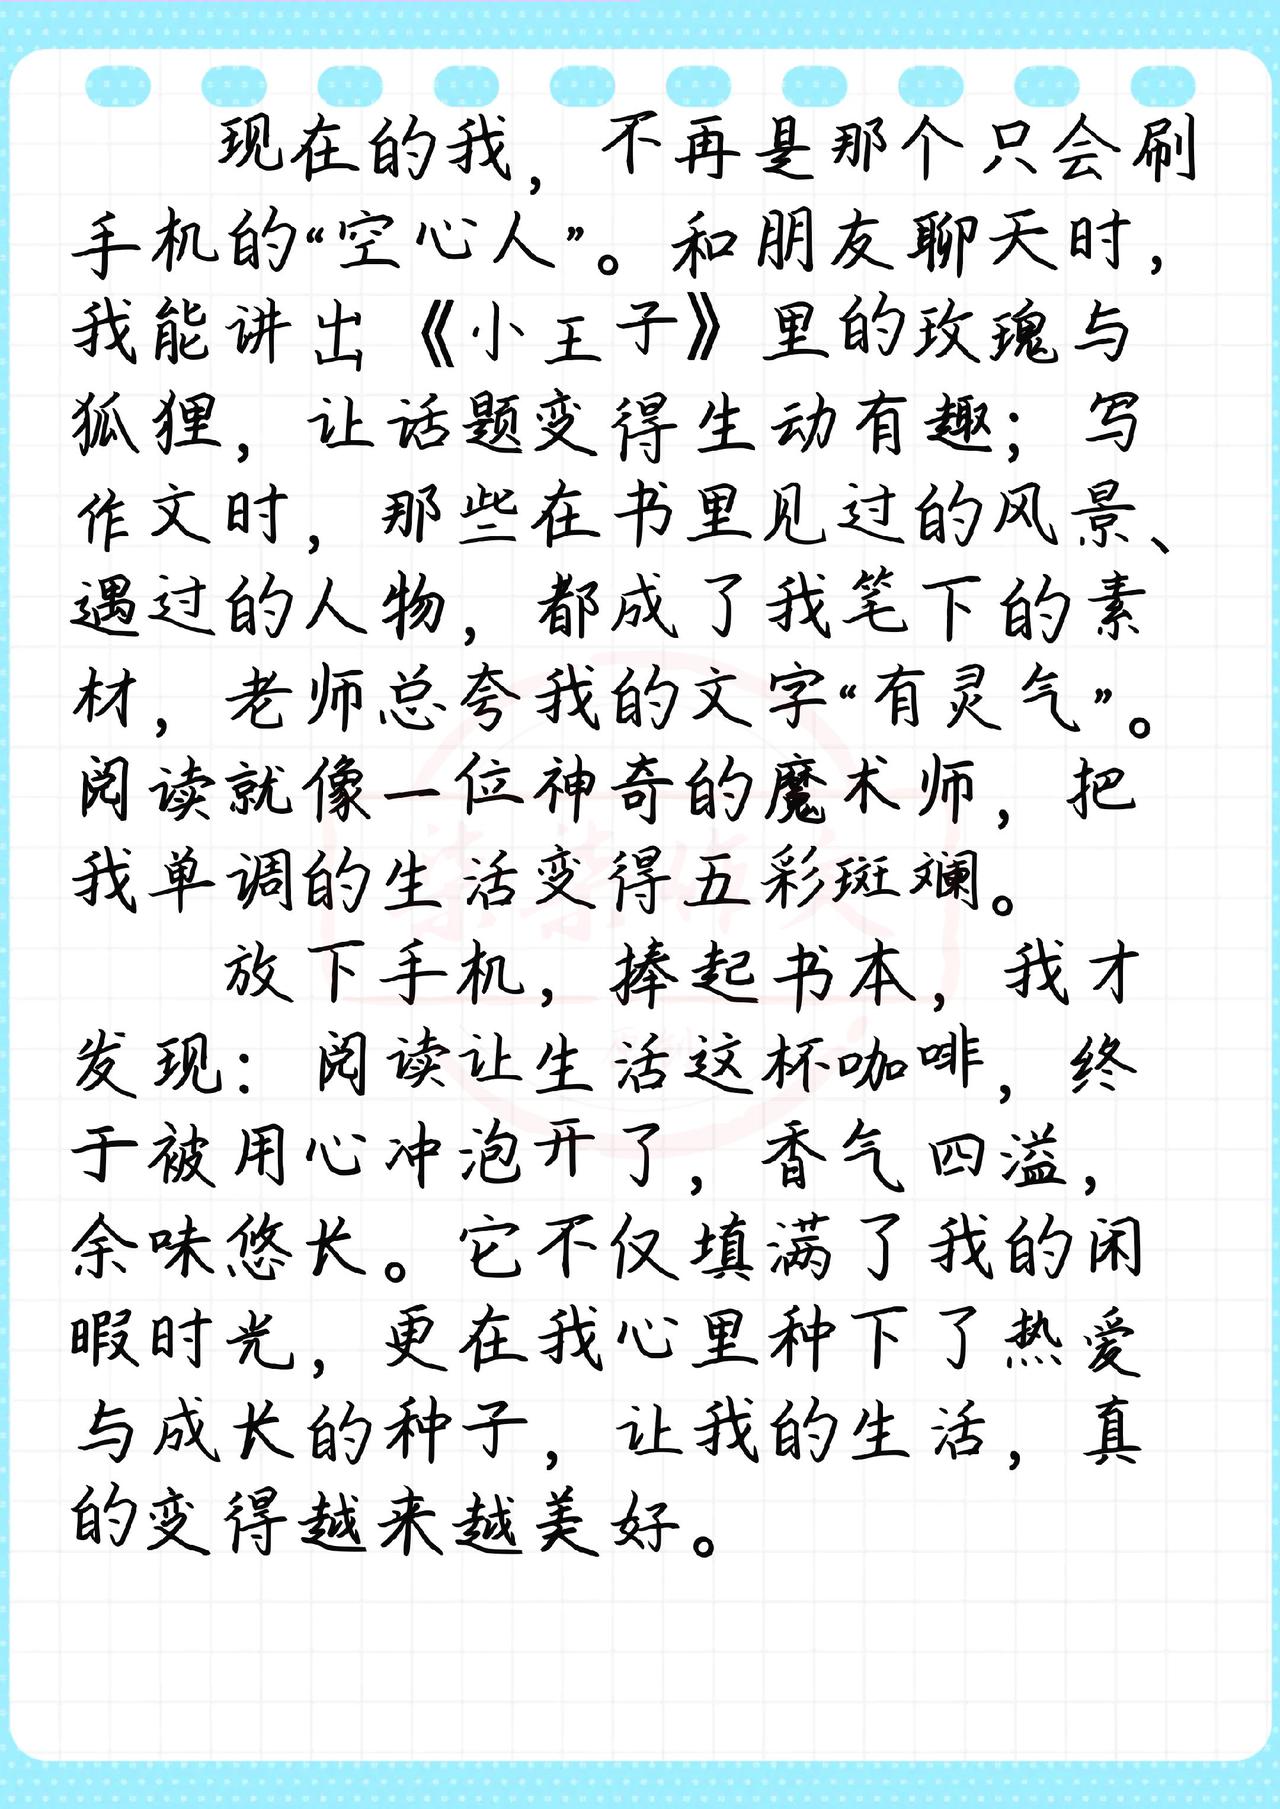 现在的我，不再是那个只会刷
手机的“空心人”。和朋友聊天时，
我能讲出《小王子》里的玫瑰与
狐狸，让话题变得生动有趣；写
作文时，那些在书里见过的风景、
遇过的人物，都成了我笔下的素
材，老师总夸我的文字“有灵气”。
阅读就像一位神奇的魔术师，把
我单调的生活变得五彩斑斓。
放下手机，捧起书本，我才
发现：阅读让生活这杯咖啡，终
于被用心冲泡开了，香气四溢，
余味悠长。它不仅填满了我的闲
暇时光，更在我心里种下了热爱
与成长的种子，让我的生活，真
的变得越来越美好。